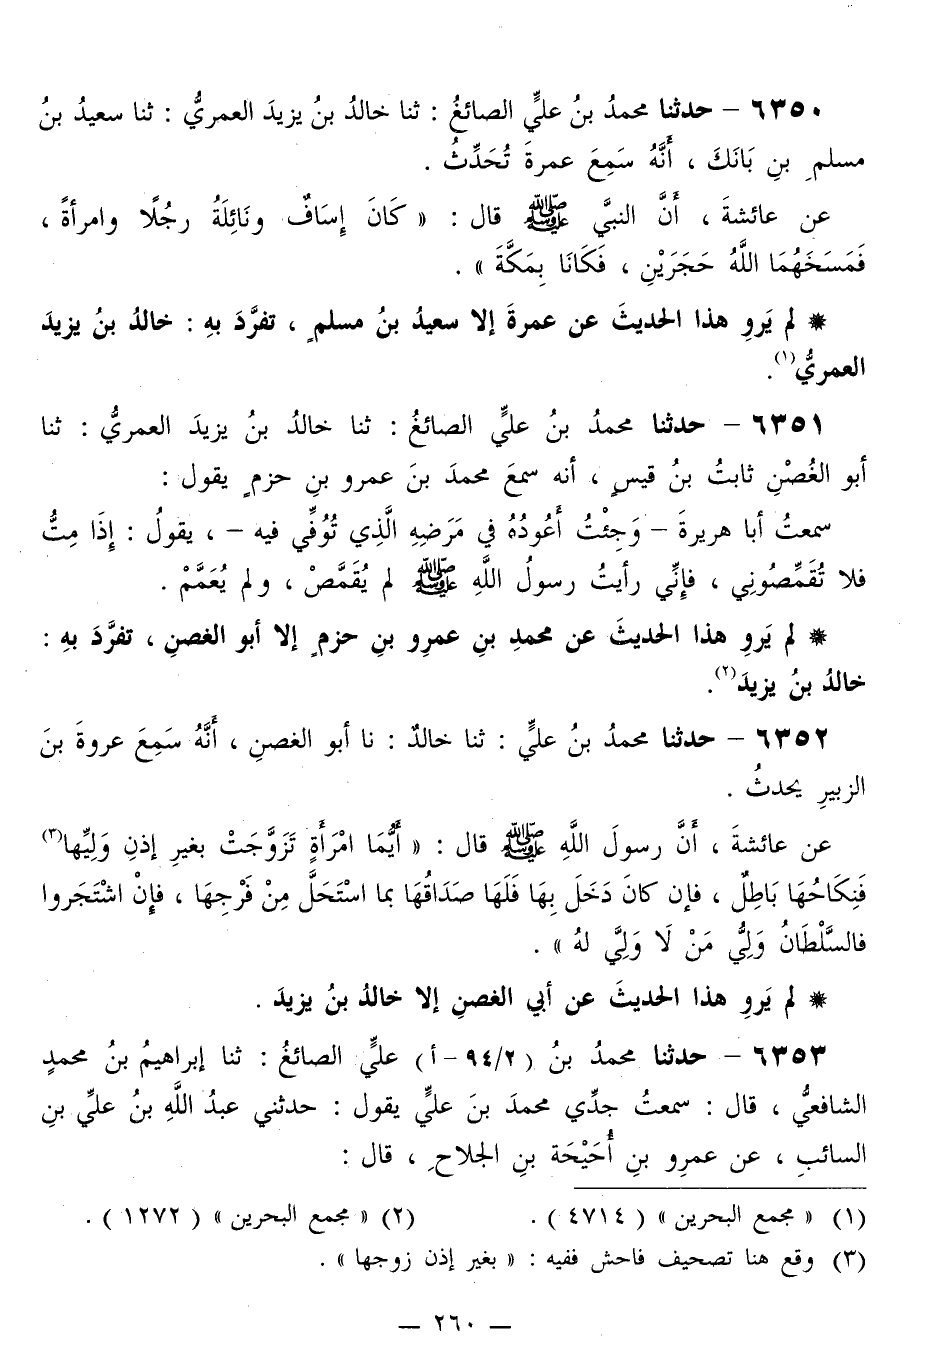 ٦٣٥٠ – حدثنا محمدُ بنُ عليٍّ الصائغُ : ثنا خالدُ بنُ يزيدَ العمريُّ : ثنا سعيدُ بنُ
مسلمِ بنِ بَانَكَ ، أَنَّهُ سَمِعَ عمرةَ تُحَدِّثُ .
عن عائشةَ ، أَنَّ النبيَّ ﷺ قال : « كَانَ إِسَافٌ ونَائِلَةُ رجُلًا وامرأةً ،
فَمَسَخَهُمَا اللَّهُ حَجَرَيْنِ ، فَكَانَا بِمَكَّةَ » .
✵ لم يَروِ هذا الحديثَ عن عمرةَ إلا سعيدُ بنُ مسلمٍ ، تفرَّدَ بهِ : خالدُ بنُ يزيدَ
العمريُّ(١).
٦٣٥١ – حدثنا محمدُ بنُ عليٍّ الصائغُ : ثنا خالدُ بنُ يزيدَ العمريُّ : ثنا
أبو الغُصْنِ ثابتُ بنُ قيسٍ ، أنه سمعَ محمدَ بنَ عمرو بنِ حزمٍ يقول :
سمعتُ أبا هريرةَ – وَجِئْتُ أَعُودُهُ في مَرَضِهِ الَّذِي تُوُفِّي فيه – ، يقولُ : إِذَا مِتُّ
فلا تُقَمِّصُونِي ، فَإِنِّي رأيتُ رسولُ اللَّهِ ﷺ لم يُقَمَّصْ ، ولم يُعَمَّمْ .
✵ لم يَروِ هذا الحديثَ عن محمدِ بنِ عمرِو بنِ حزمٍ إلا أبو الغصنِ ، تفرَّدَ بهِ :
خالدُ بنُ يزيدَ(٢).
٦٣٥٢ – حدثنا محمدُ بنُ عليٍّ : ثنا خالدٌ : نا أبو الغصنِ ، أَنَّهُ سَمِعَ عروةَ بنَ
الزبيرِ يحدثُ .
عن عائشةَ ، أَنَّ رسولَ اللَّهِ ﷺ قال : « أَيُّمَا امْرَأَةٍ تَزَوَّجَتْ بغيرِ إذنِ وَلِيِّها(٣)
فَنِكَاحُهَا بَاطِلٌ ، فإن كانَ دَخَلَ بِهَا فَلَهَا صَدَاقُهَا بما اسْتَحَلَّ مِنْ فَرْجِهَا ، فَإِنْ اشْتَجَروا
فالسَّلْطَانُ وَلِيُّ مَنْ لَا وَلِيَّ لهُ » .
✵ لم يَروِ هذا الحديثَ عن أبي الغصنِ إلا خالدُ بنُ يزيدَ .
٦٣٥٣ – حدثنا محمدُ بنُ ( ٩٤/٢ – أ ) عليٍّ الصائغُ : ثنا إبراهيمُ بنُ محمدٍ
الشافعيُّ ، قال : سمعتُ جدِّي محمدَ بنَ عليٍّ يقول : حدثني عبدُ اللَّهِ بنُ عليِّ بنِ
السائبِ ، عن عمرِو بنِ أُحَيْحَة بنِ الجلاحِ ، قال :
(١) « مجمع البحرين » ( ٤٧١٤ ) . (٢) « مجمع البحرين » ( ١٢٧٢ ) .
(٣) وقع هنا تصحيف فاحش ففيه : « بغير إذن زوجها » .
— ٢٦٠ —